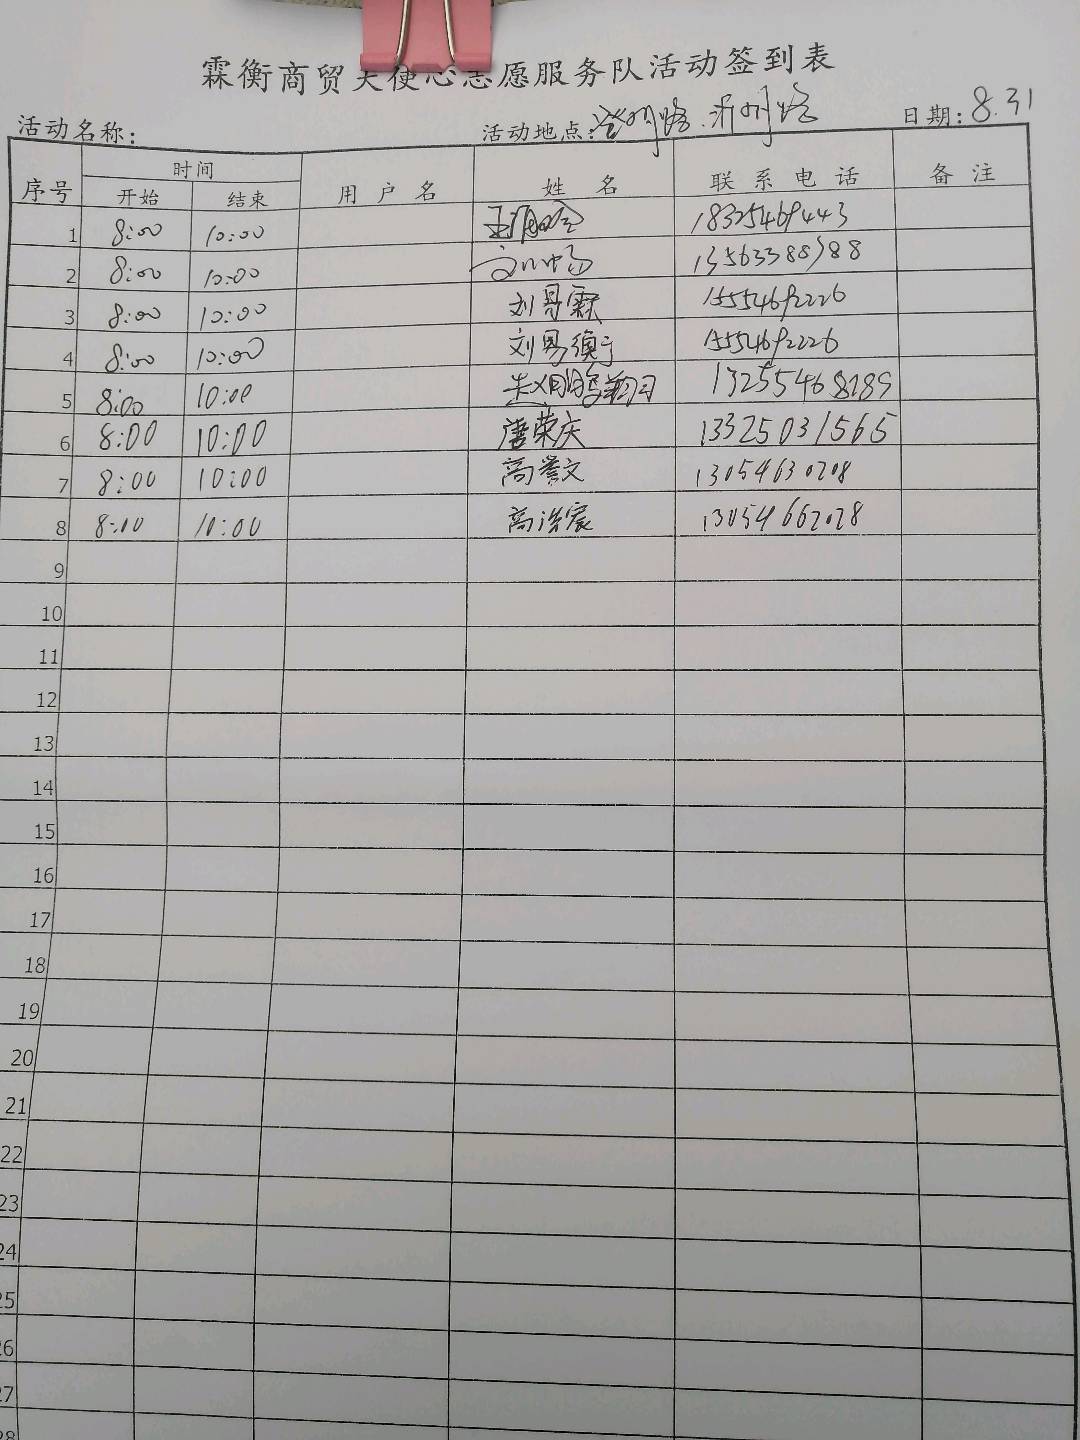 霖衡商贸天使心志愿服务队活动签到表
活动名称: 活动地点: 日期: 8.31
序号 时间 用户名 姓名 联系电话 备注
开始 结束
1 8:00 10:00 18325469443
2 8:00 10:00 13563388988
3 8:00 10:00 刘易霖 15554692226
4 8:00 10:00 刘易衡 15554692226
5 8:00 10:00 13255468289
6 8:00 10:00 唐荣庆 13325031565
7 8:00 10:00 高誉文 13054630208
8 8:00 10:00 高浩宸 13054662028
9
10
11
12
13
14
15
16
17
18
19
20
21
22
23
24
25
26
27
28